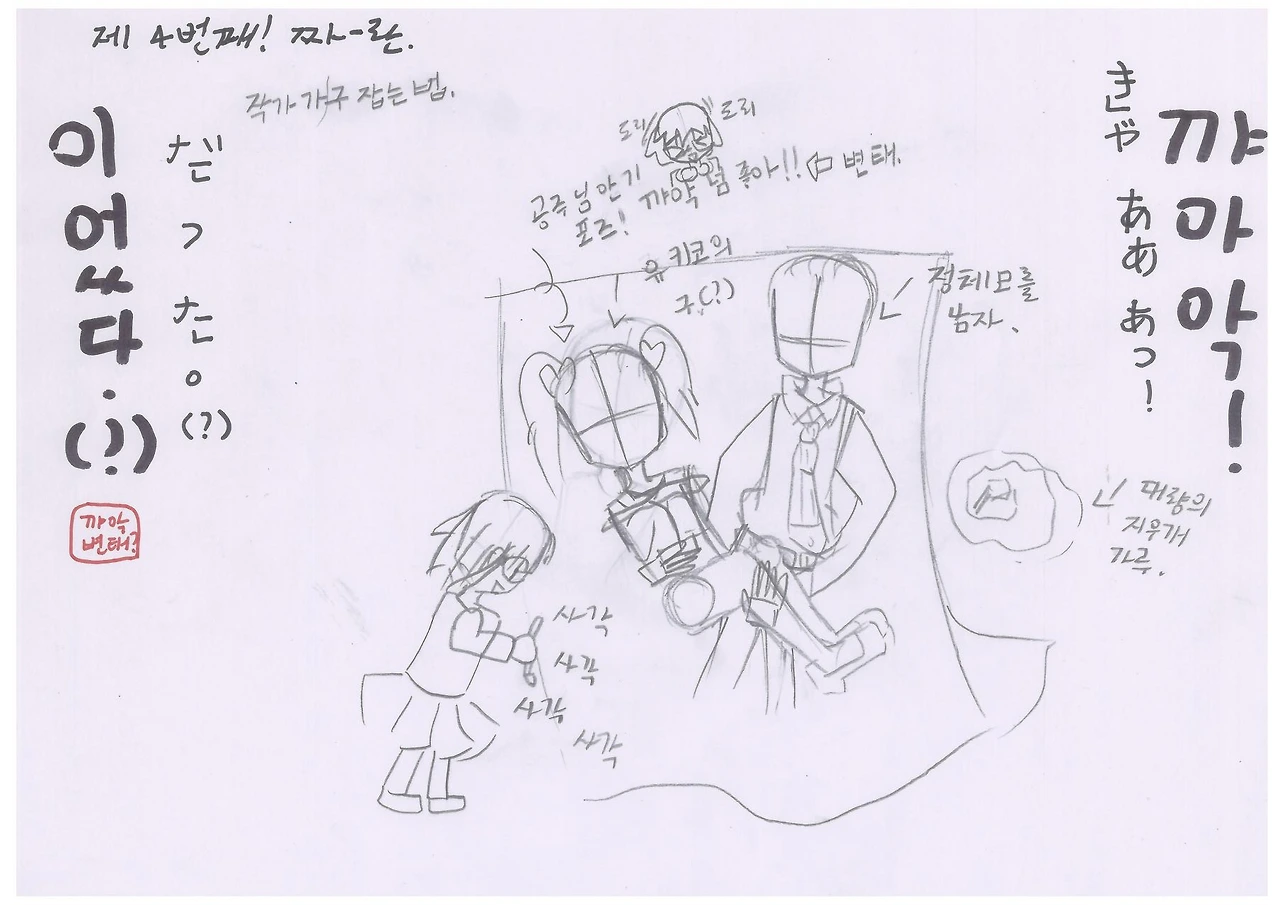 제 4번째! 짜-란.
작가가 구 잡는 법.
이었다.(?)
까악
변태?
도리 도리
공주님 안기
포즈!
꺄악 넘 좋아!! ⇦ 변태.
유키코의
구(?)
정체모를
남자.
きゃ ああ あっ!
꺄아악!
대량의
지우개
가루.
사각
사각
사각
사각